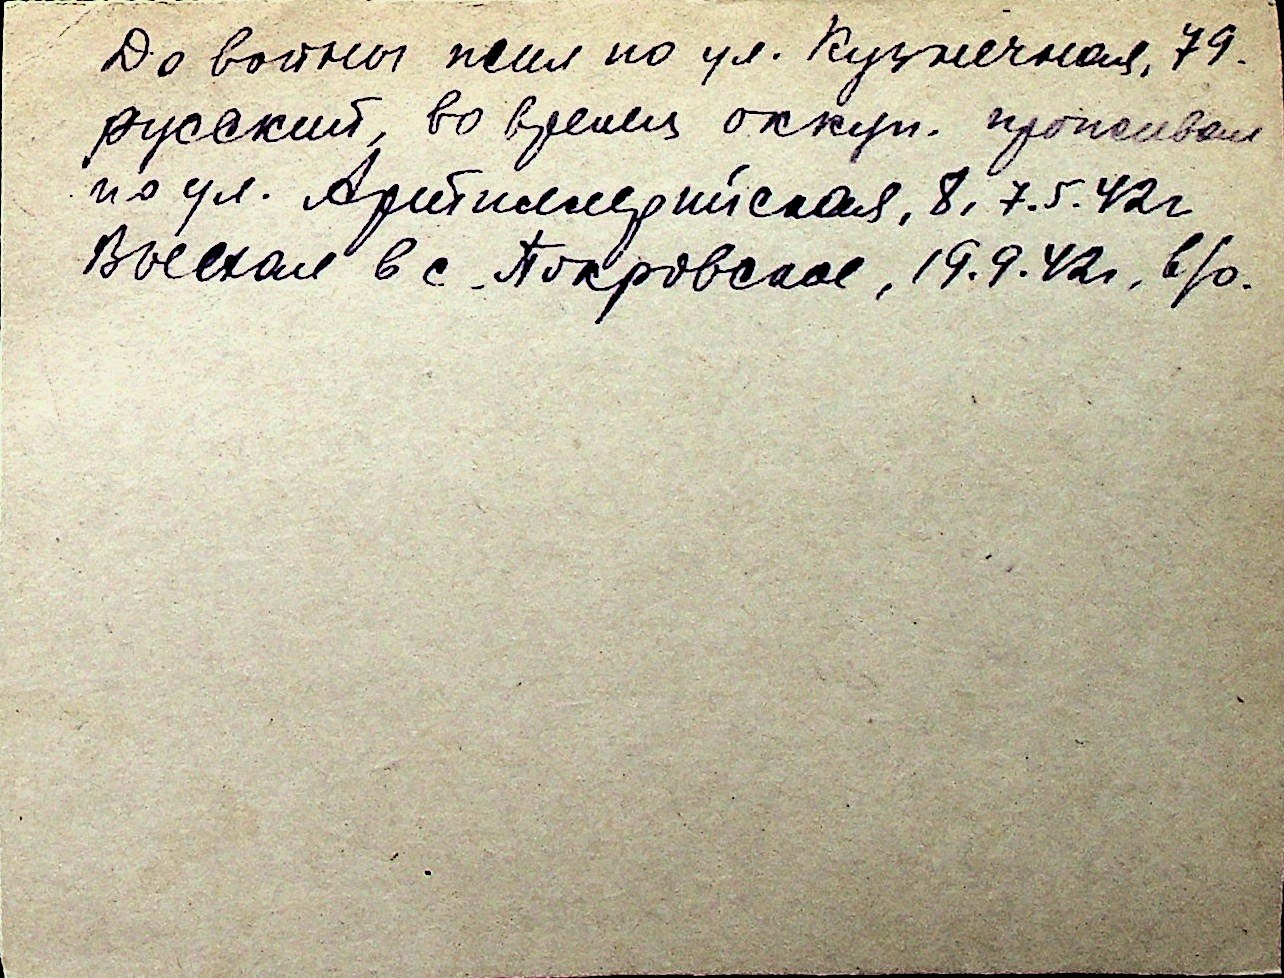 До войны жил по ул. Кузнечная, 79.
русский, во время оккуп. проживал
по ул. Артиллерийская, 8, 7.5.42г
Выехал в с. Покровское, 19.9.42г, в/о.